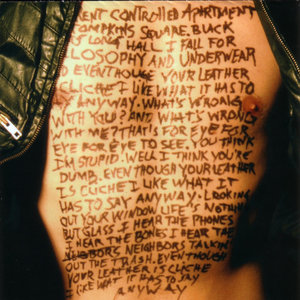 RENT CONTROLLED APARTMENT
TOMPKINS SQUARE. BLACK
IS LONG HALL I FALL FOR
LOSOPHY AND UNDERWEAR
D EVENTHOUGH YOUR LEATHER
CLICHE I LIKE WHAT IT HAS TO
ANYWAY. WHAT'S WRONG
WITH YOU? AND WHAT'S WRONG
WITH ME? THAT'S FOR EYE FOR
EYE FOR EYE TO SEE. YOU THINK
I'M STUPID. WELL I THINK YOU'RE
DUMB. EVEN THOUGH YOUR LEATHER
IS CLICHE I LIKE WHAT IT
HAS TO SAY ANYWAY. LOOKING
OUT YOUR WINDOW LIFE'S NOTHING
BUT GLASS I HEAR THE PHONES
I HEAR THE BONES I HEAR THE
NEIGHBORS TALKIN'
OUT THE TRASH. EVEN THOUGH
YOUR LEATHER IS CLICHE
I LIKE WHAT IT HAS TO SAY
ANYWAY